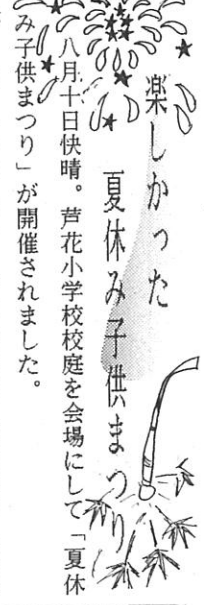 楽しかった
夏休み子供まつり
八月十日快晴。芦花小学校校庭を会場にして「夏休
み子供まつり」が開催されました。